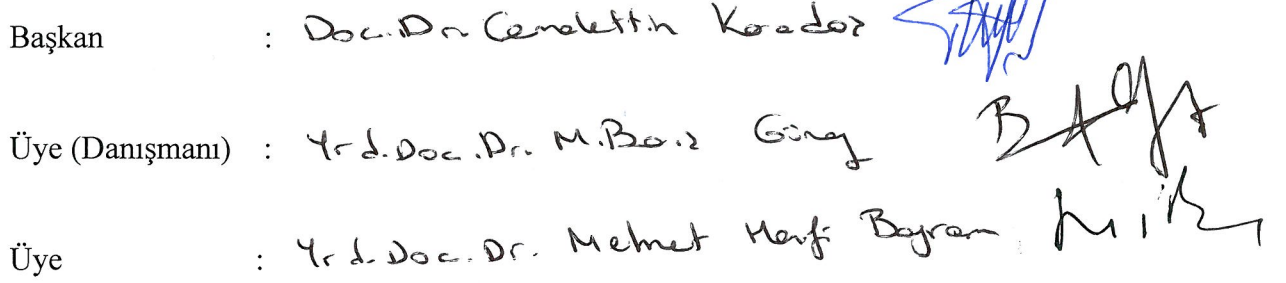 Başkan : Doc. Dr. Cemalettin
Üye (Danışmanı) : Yrd. Doc. Dr. M. Barış
Üye : Yrd. Doc. Dr. Mehmet Bayram